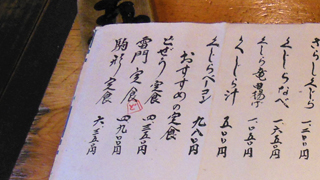 さらしくじら 一、三〇〇円
くじらなべ 一、六五〇円
くじら竜田揚げ 一、〇五〇円
くじら汁 五〇〇円
くじらベーコン 九八〇円
おすすめの定食
どぜう定食 四、三五〇円
雷門定食 四、九〇〇円
駒形定食 六、三五〇円